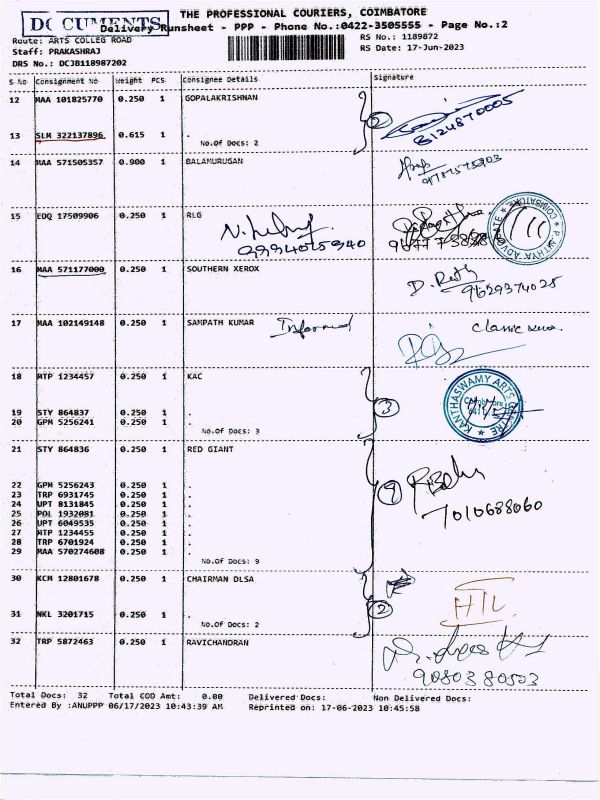 THE PROFESSIONAL COURIERS, COIMBATORE
DOCUMENTS
Delivery Runsheet - PPP - Phone No.:0422-3505555 - Page No.:2
Route: ARTS COLLEG ROAD
RS No.: 1189872
Staff: PRAKASHRAJ
RS Date: 17-Jun-2023
DRS No.: DCJB118987202
S No Consignment No Weight PCS Consignee Details Signature
12 MAA 101825770 0.250 1 GOPALAKRISHNAN
2
8124870005
13 SLM 322137896 0.615 1 .
No.Of Docs: 2
14 MAA 571505357 0.900 1 BALAMURUGAN
15 EDQ 17509906 0.250 1 RLG
COIMBATORE
ADVOCATE
16 MAA 571177000 0.250 1 SOUTHERN XEROX
D.
9629374025
17 MAA 102149148 0.250 1 SAMPATH KUMAR Informed
Classic
18 MTP 1234457 0.250 1 KAC
3
KANTHASWAMY ARTS
19 STY 864837 0.250 1 .
20 GPM 5256241 0.250 1 .
No.Of Docs: 3
21 STY 864836 0.250 1 RED GIANT
9
7010688060
22 GPM 5256243 0.250 1 .
23 TRP 6931745 0.250 1 .
24 UPT 8131845 0.250 1 .
25 POL 1932081 0.250 1 .
26 UPT 6049535 0.250 1 .
27 MTP 1234455 0.250 1 .
28 TRP 6701924 0.250 1 .
29 MAA 570274608 0.250 1 .
No.Of Docs: 9
30 KCM 12801678 0.250 1 CHAIRMAN DLSA
2
31 NKL 3201715 0.250 1 .
No.Of Docs: 2
32 TRP 5872463 0.250 1 RAVICHANDRAN
9080380503
Total Docs: 32 Total COD Amt: 0.00 Delivered Docs: Non Delivered Docs:
Entered By :ANUPPP 06/17/2023 10:43:39 AM Reprinted on: 17-06-2023 10:45:58